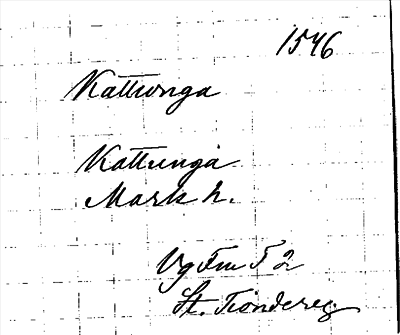 1546
Kattunga
Kattunga
Mark h.
Vg Fm F 2
St. Tröndereg